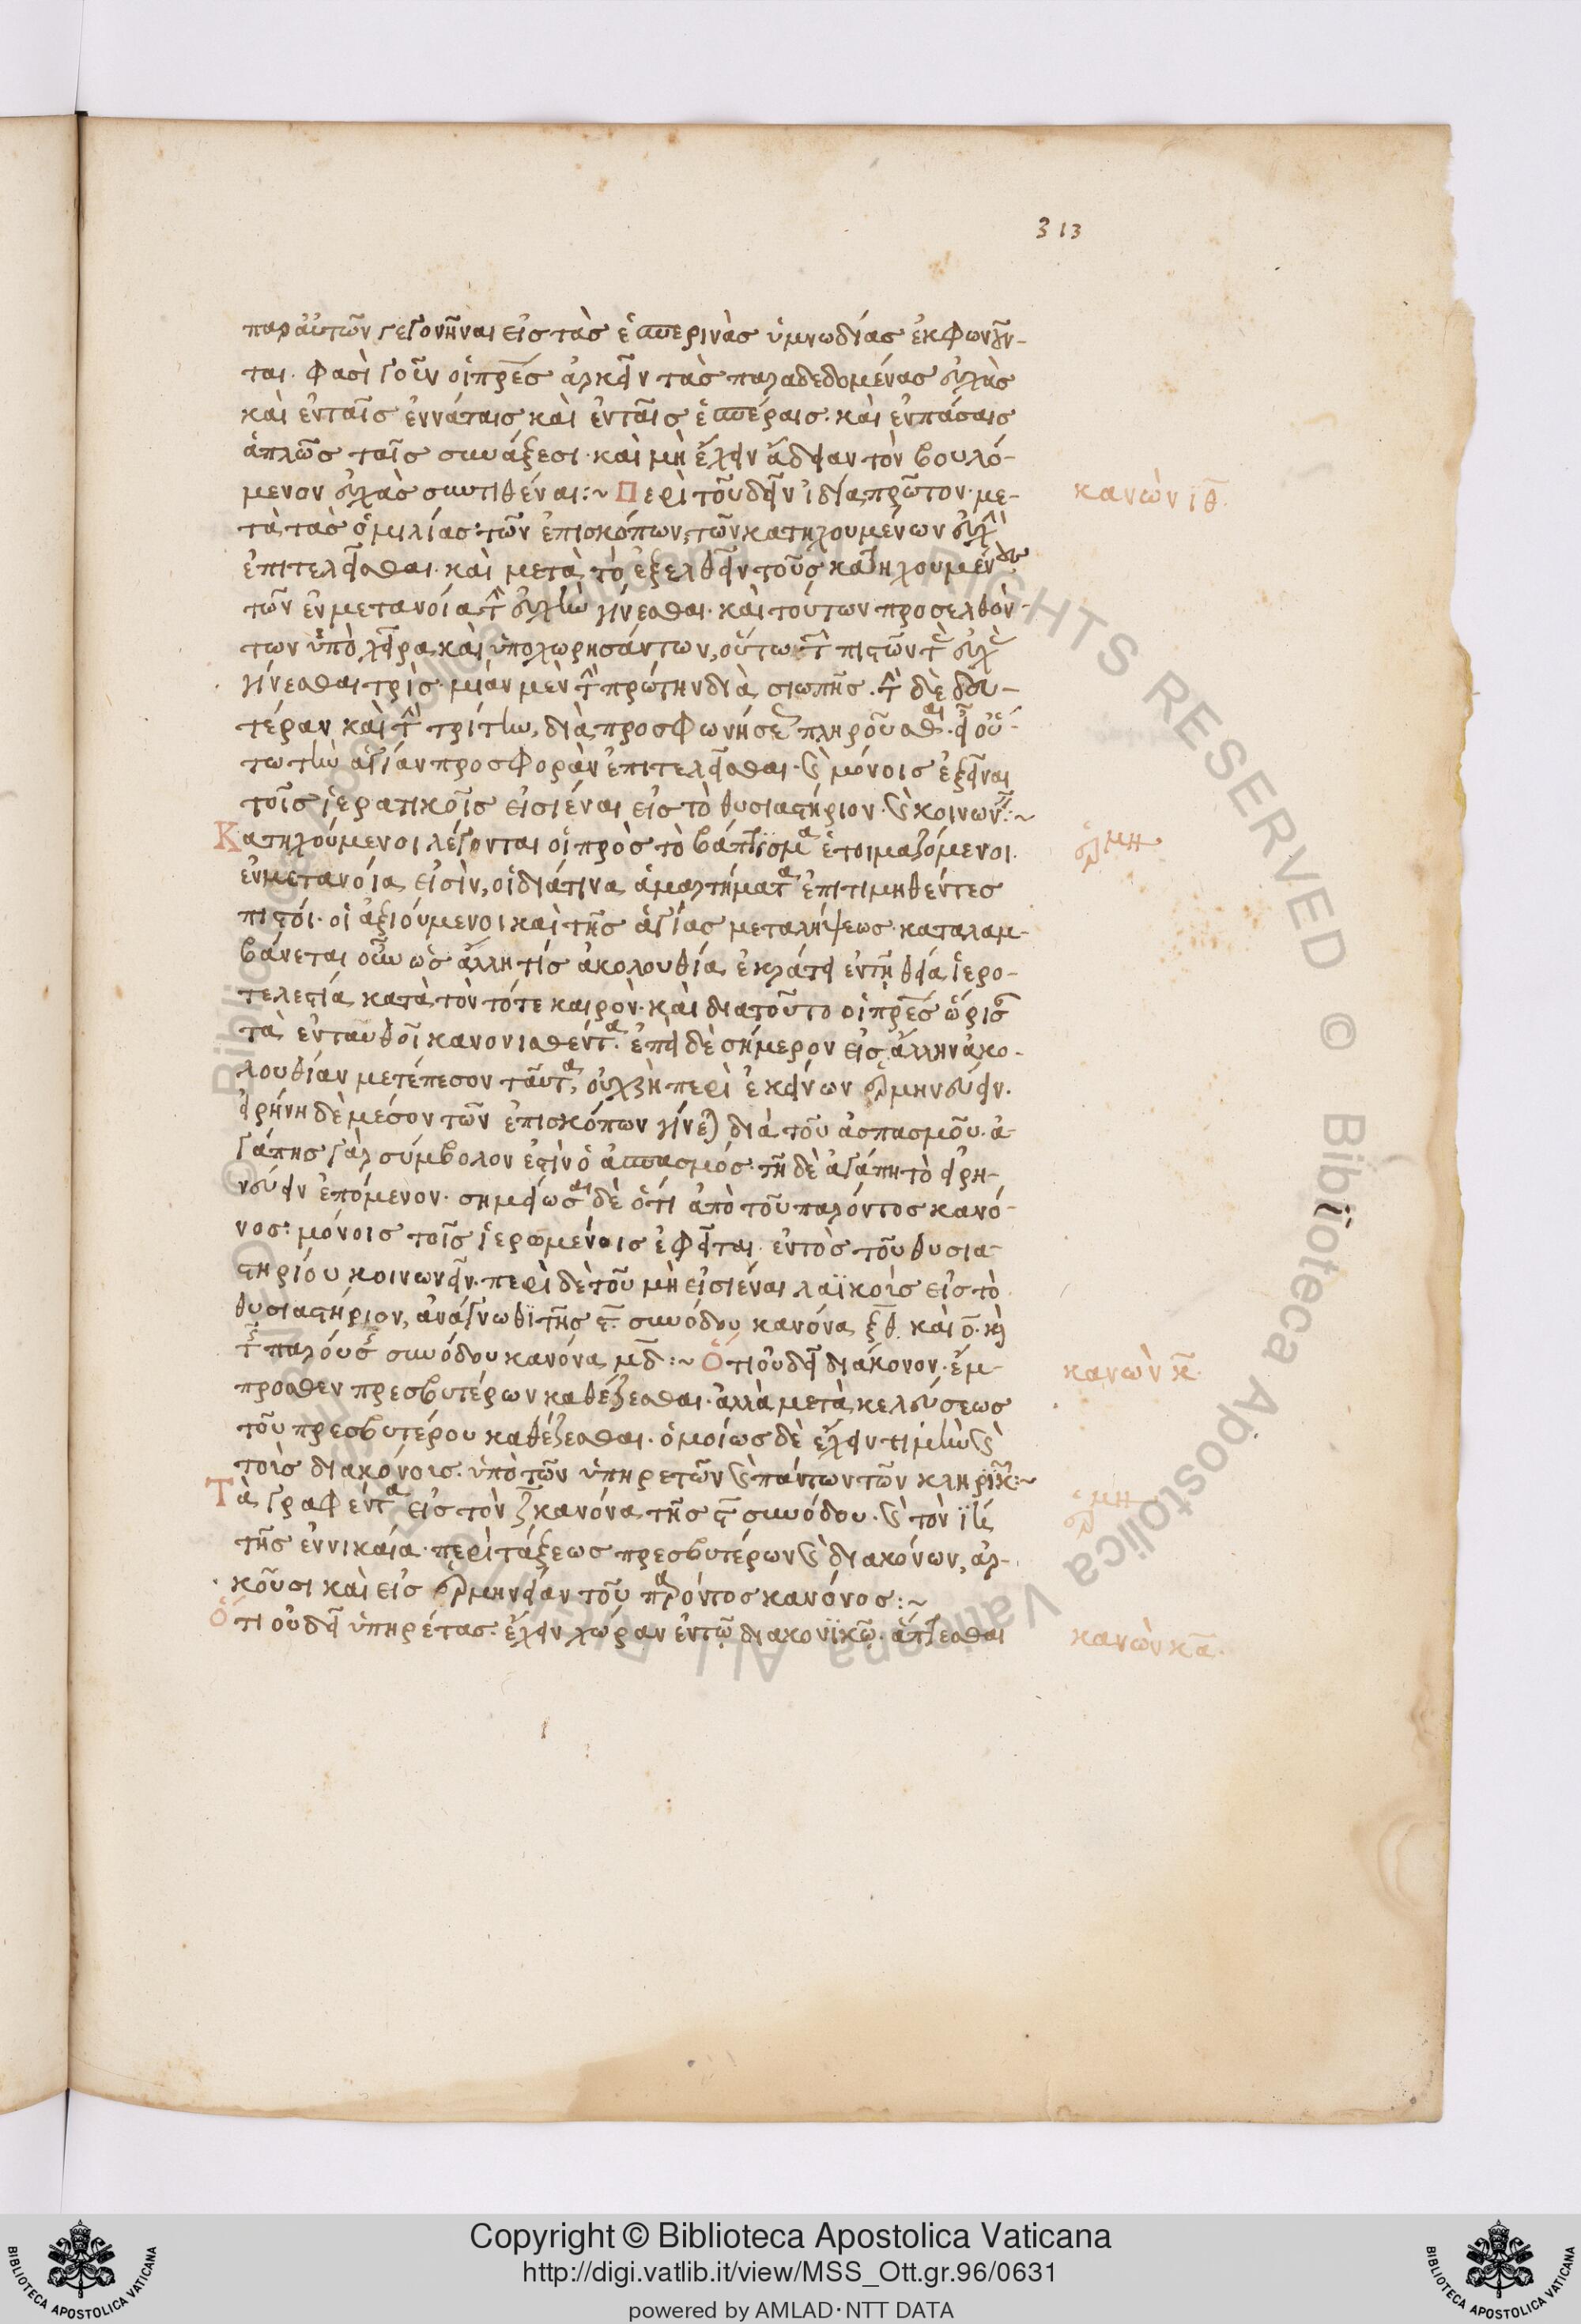 313
παρ αὐτῶν γεγονῆναι εἰς τὰς ἑσπερινὰς ὑμνωδίας ἐκφωνοῦν-
ται. φασὶ γοῦν οἱ πρες ἀρκεῖν τὰς παραδεδομένας εὐχὰς
καὶ ἐν ταῖς ἐννάταις καὶ ἐν ταῖς ἑσπέραις. καὶ ἐν πάσαις
ἁπλῶς ταῖς συνάξεσι. καὶ μὴ ἔχειν ἄδειαν τὸν βουλό-
μενον εὐχὰς συντιθέναι:~ Περὶ τοῦ δεῖν ἰδία πρῶτον. με-
κανὼν ιθ.
τὰ τὰς ὁμιλίας τῶν ἐπισκόπων, τῶν κατηχουμένων εὐχὴ
ἐπιτελεῖσθαι. καὶ μετὰ τὸ ἐξελθεῖν τοὺς κατηχουμένους
τῶν ἐν μετανοία τ εὐχὴν γίνεσθαι. καὶ τούτων προσελθόν-
των ὑπὸ χεῖρα καὶ ὑποχωρησάντων, οὕτω τ πιστῶν τ εὐχ
γίνεσθαι τρὶς. μίαν μὲν τ πρώτην διὰ σιωπῆς. τ δὲ δευ-
τέραν καὶ τ τρίτην, διὰ προσφωνήσε πληροῦσθαι. εἶ οὕ-
τω τὴν ἁγίαν προσφορὰν ἐπιτελεῖσθαι. καὶ μόνοις ἐξεῖναι
τοῖς ἱερατικοῖς εἰσιέναι εἰς τὸ θυσιαστήριον. καὶ κοινων:~
Κατηχούμενοι λέγονται οἱ πρὸς τὸ βάπτισμα ἑτοιμαζόμενοι.
ἑρμη
ἐν μετανοία εἰσὶν, οἱ διάτινα ἁμαρτήματα ἐπιτιμηθέντες
πιστόι. οἱ ἀξιούμενοι καὶ τῆς ἁγίας μεταλήψεως. καταλαμ-
βάνεται οὖν ὡς ἄλλη τίς ἀκολουθία ἐκράτει ἐν τῆ θεία ἱερο-
τελεστία κατὰ τὸν τότε καιρὸν. καὶ διατοῦτο οἱ πρες ὥρισ
τὰ ἐνταυθοῖ κανονισθέντα. ἐπεὶ δὲ σήμερον εἰς ἄλλην ἀκο-
λουθίαν μετέπεσον ταῦτα, οὐ χρὴ περὶ ἐκείνων ἑρμηνεύειν.
εἰρήνη δὲ μέσον τῶν ἐπισκόπων γίνε) διὰ τοῦ ἀσπασμοῦ. ἀ-
γάπης γὰρ σύμβολον ἐστὶν ὁ ἀσπασμός. τῆ δὲ ἀγάπη τὸ εἰρη-
νεύειν ἑπόμενον. σημείωσαι δὲ ὅτι ἀπὸ τοῦ παρόντος κανό-
νος. μόνοις τοῖς ἱερωμένοις ἐφεῖται. ἐντὸς τοῦ θυσια-
στηρίου κοινωνεῖν. περὶ δὲ τοῦ μὴ εἰσιέναι λαϊκοὶς εἰς τὸ
θυσιαστήριον, ἀνάγνωθι τῆς ϛ συνόδου κανόνα ξθ. καὶ ο. κὶ
τ παρούσ συνόδου κανόνα μδ:~ Ὅτι οὐ δεῖ διάκονον. ἔμ-
κανὼν κ.
προσθεν πρεσβυτέρων καθέζεσθαι. ἀλλὰ μετὰ κελεύσεως
τοῦ πρεσβυτέρου καθέζεσθαι. ὁμοίως δὲ ἔχειν τιμὴν καὶ
τοῖς διακόνοις. ὑπὸ τῶν ὑπηρετῶν καὶ πάντων τῶν κληρικ:~
Τὰ γραφέντα εἰς τὸν ζ κανόνα τῆς ϛ συνόδου. καὶ τὸν ιη
ἑρμη
τῆς ἐν νικαία. περὶ τάξεως πρεσβυτέρων καὶ διακόνων, ἀρ-
κοῦσι καὶ εἰς ἑρμηνείαν τοῦ παρόντος κανόνος:~
Ὅτι οὐ δεῖ ὑπηρέτας. ἔχειν χώραν ἐν τῶ διακονϊκῶ. ἅπτεσθαι
κανὼν κα.
Copyright © Biblioteca Apostolica Vaticana
http://digi.vatlib.it/view/MSS_Ott.gr.96/0631
powered by AMLAD·NTT DATA